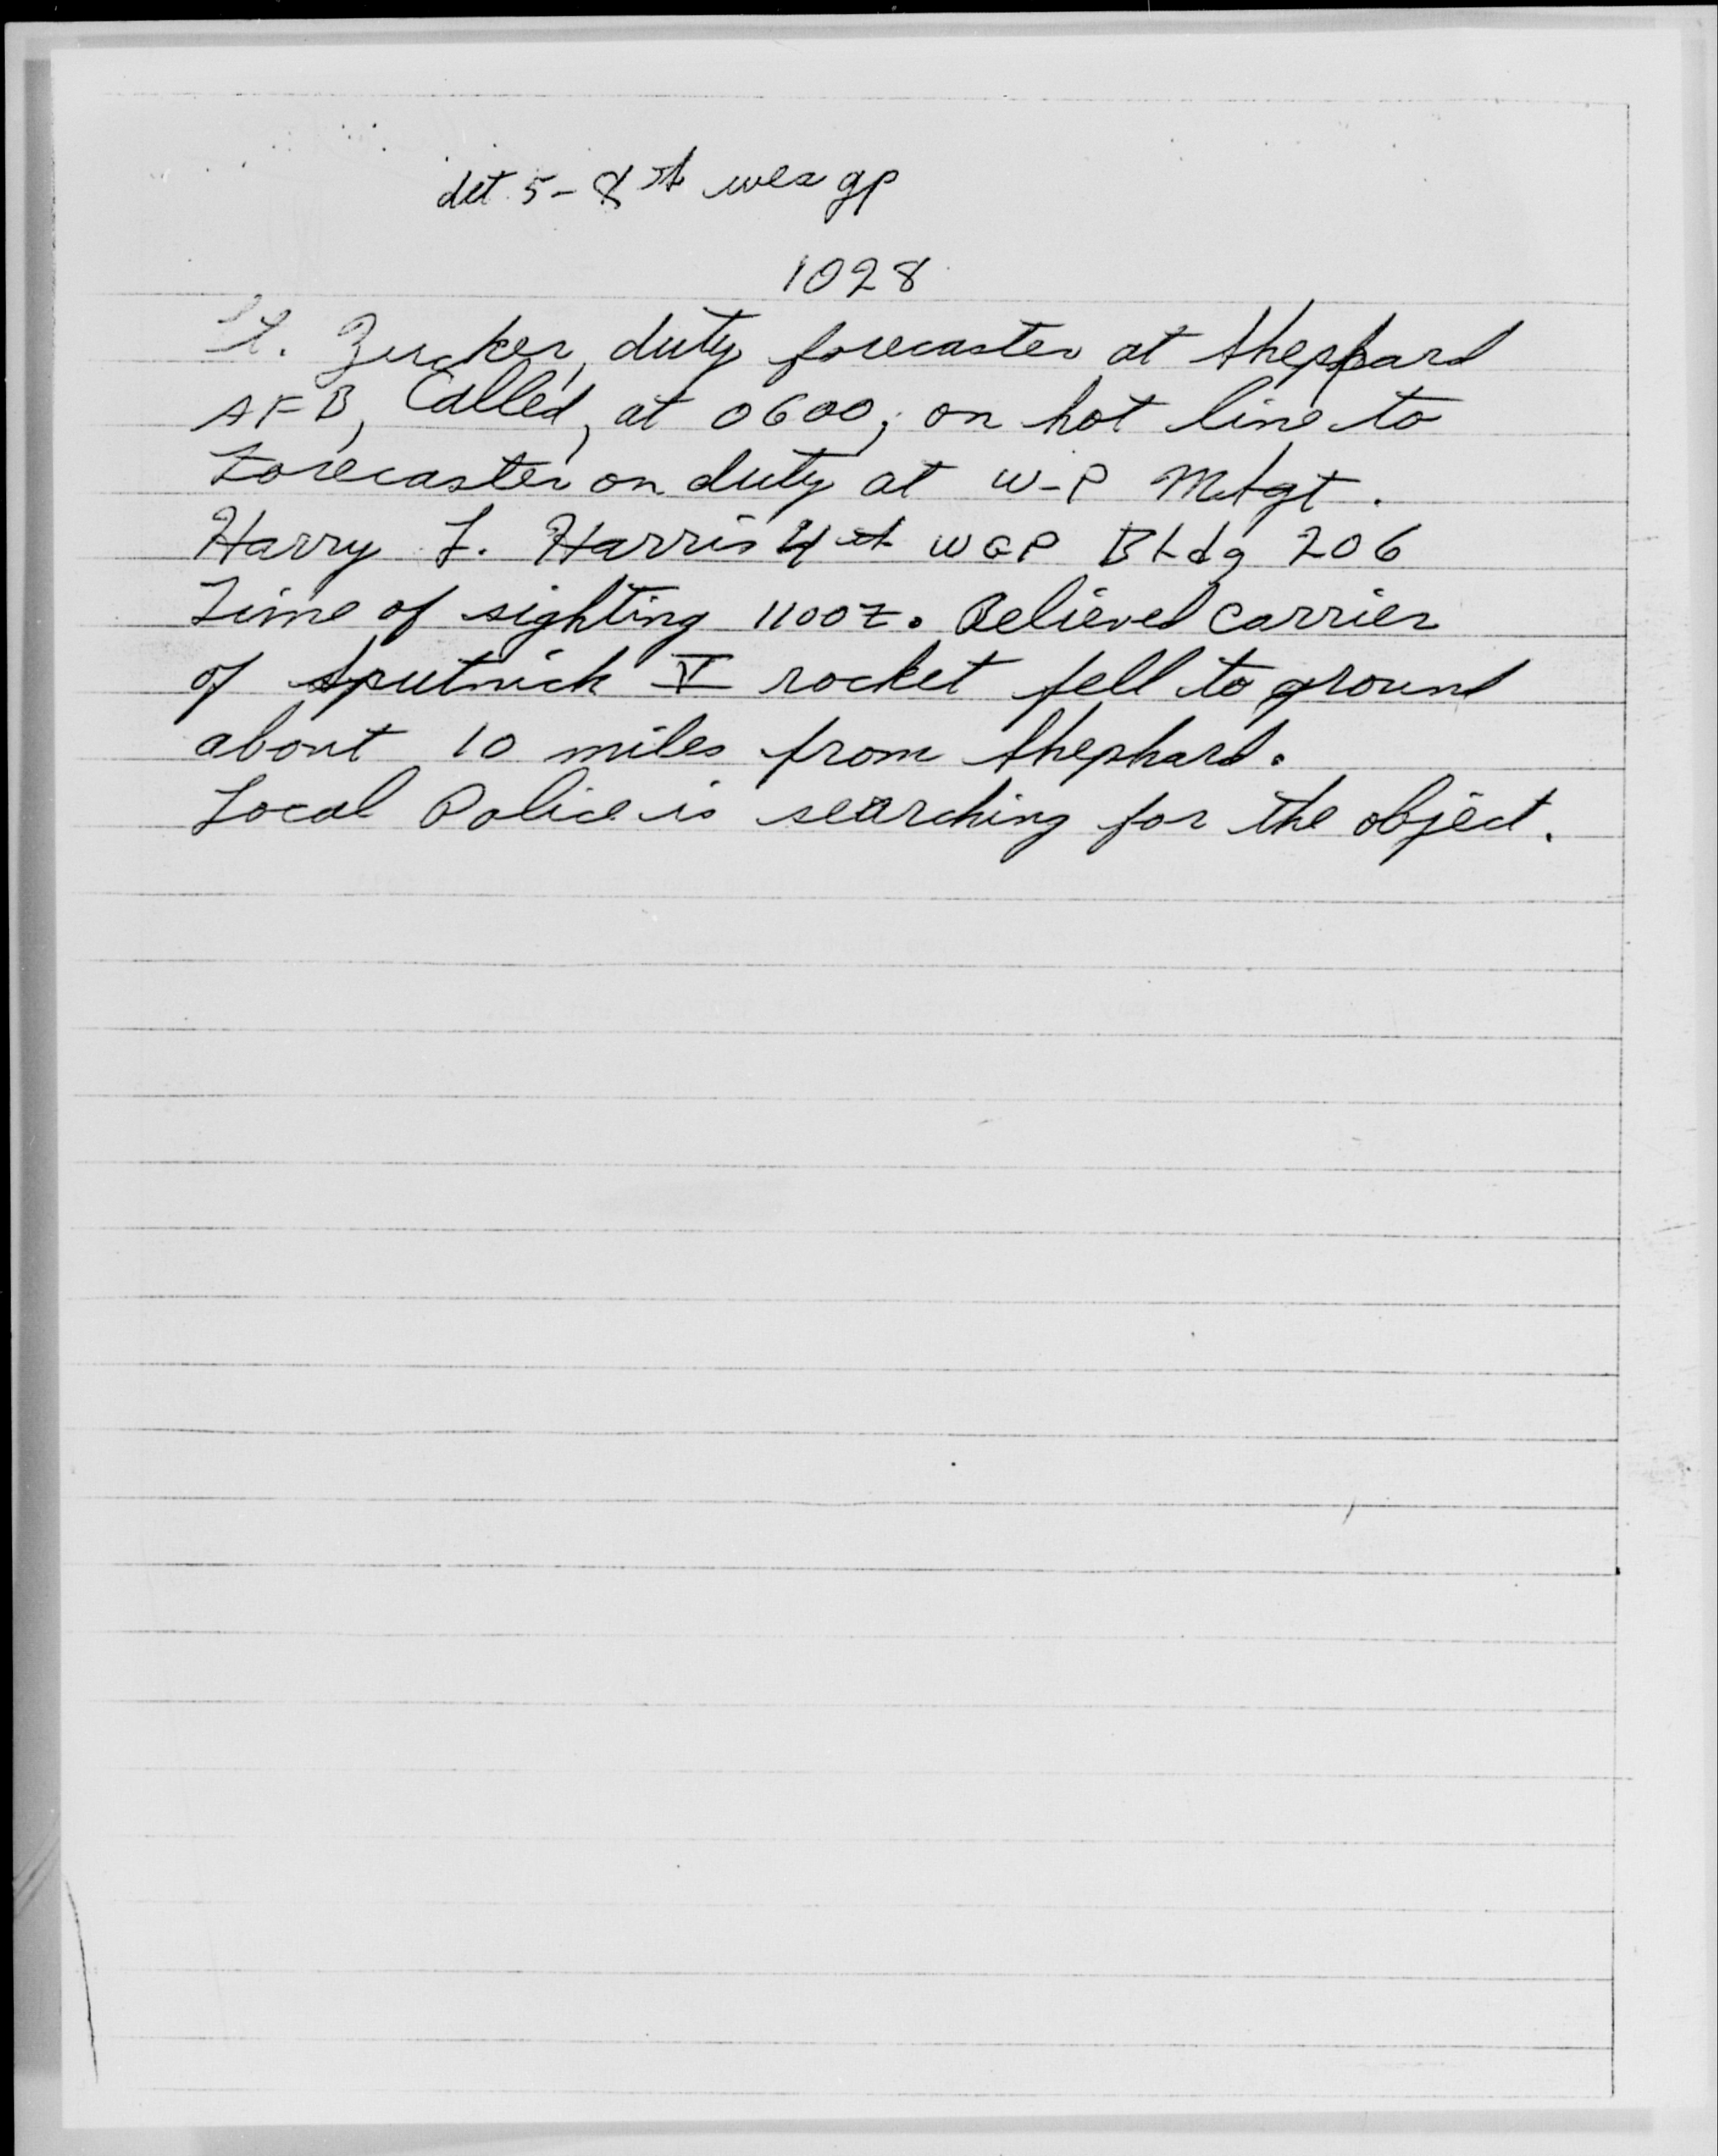 det 5 - 8th wea gp
1028
Lt. Zucker, duty forecaster at Sheppard
AFB, Called, at 0600, on hot line to
Forecaster on duty at W-P
Harry F. Harris WGP Bldg 206
Time of sighting 1100Z. Believed carrier
of Sputnick V rocket fell to ground
about 10 miles from Shephard.
Local Police is searching for the object.